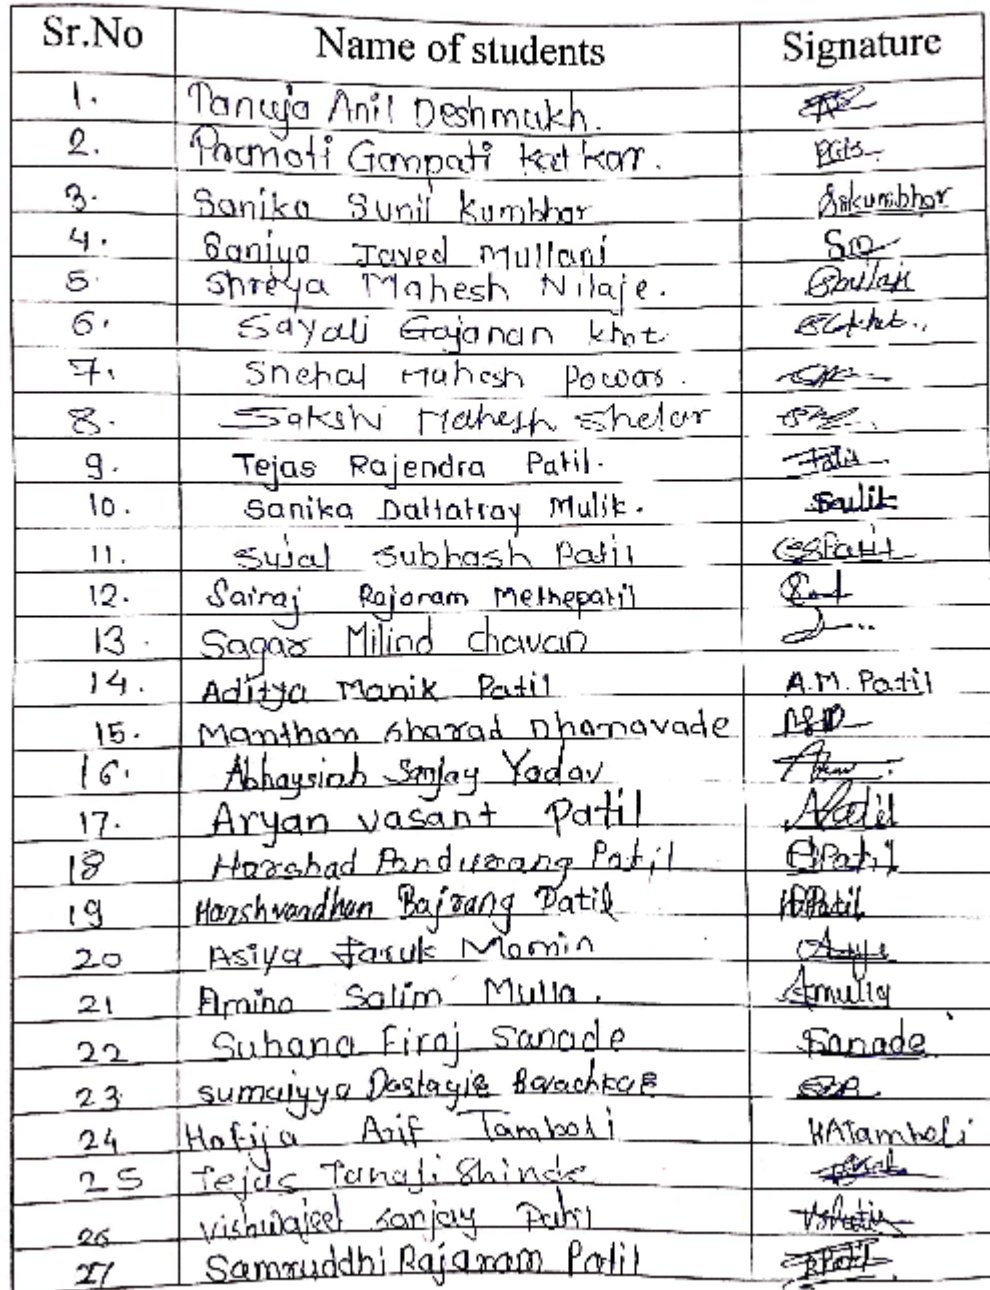 Sr.No Name of students Signature
1. Tanuja Anil Deshmukh.
2. Pramoti Ganpati Katkar.
3. Sanika Sunil Kumbhar Sskumbhar
4. Saniya Javed Mullani
5. Shreya Mahesh Nilaje.
6. Sayali Gajanan khot
7. Snehal Mahesh Powar.
8. Sakshi Mahesh Shelar
9. Tejas Rajendra Patil. Patil
10. Sanika Dattatray Mulik.
11. Sujal Subhash Patil SSPatil
12. Sairaj Rajaram Methepatil
13. Sagar Milind chavan
14. Aditya Manik Patil A.M. Patil
15. Manthan Sharad Dhanavade
16. Abhaysinh Sanjay Yadav
17. Aryan vasant Patil APatil
18 Harshad Pandurang Patil HPatil
19 Harshvardhan Bajrang Patil HBPatil
20 Asiya Faruk Momin
21 Amina Salim Mulla. Amulla
22 Suhana Firaj Sanade Sanade
23 sumaiyya Dastagir
24 Hafija Arif Tamboli HATamboli
25 Tejas Tanaji Shinde
26 vishwajeet sanjay Patil
27 Samruddhi Rajaram Patil